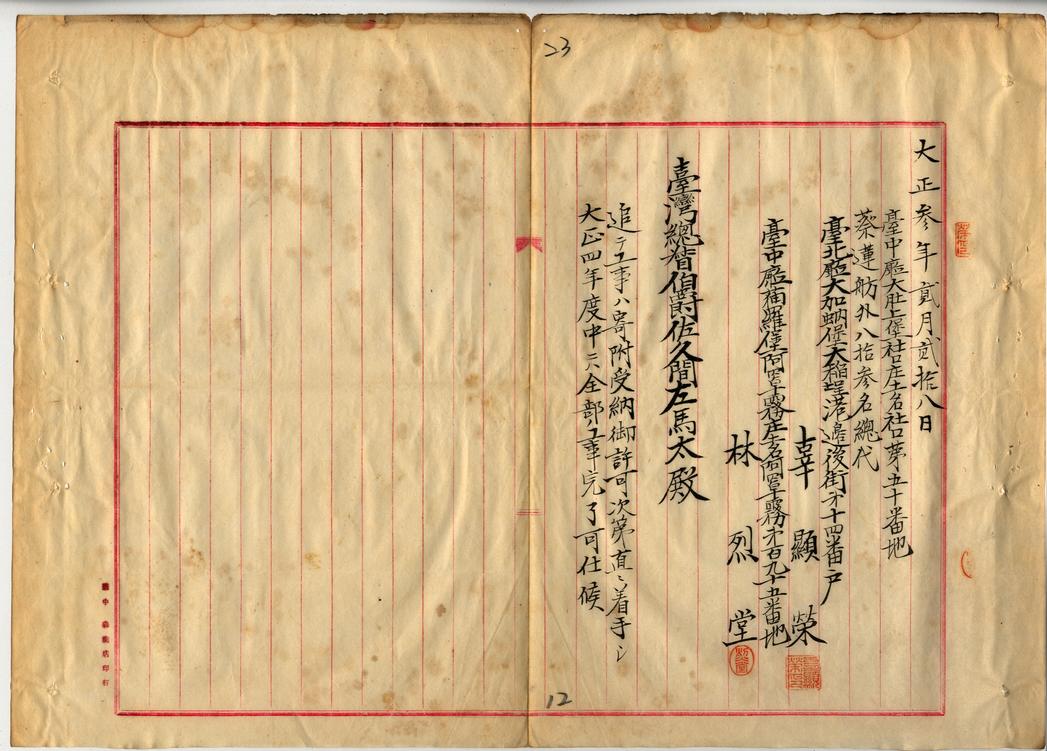 23
大正參年貳月貳拾八日
臺中廳大肚上堡社口庄土名社口第五十番地
蔡蓮舫外八拾參名總代
臺北廳大加蚋堡大稻埕港邊後街第十四番戶
辜顯榮
臺中廳猫羅堡阿罩霧庄土名阿罩霧第百九十五番地
林烈堂
臺灣總督伯爵佐久間左馬太殿
追テ工事ハ寄附受納御許可次第直ニ着手シ
大正四年度中ニハ全部ノ工事完了可仕候
12